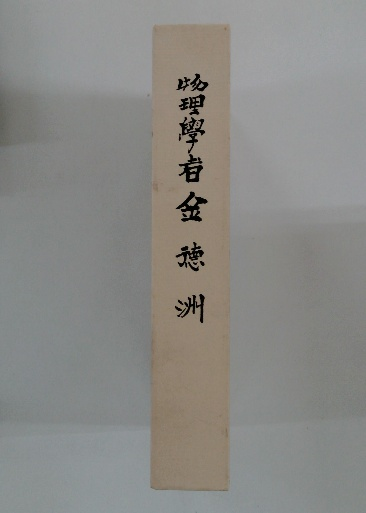 物理學者金德洲